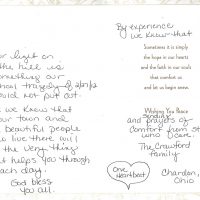 Your light on
the hill is
something our
school tragedy of 2/27/12
could not put out.
We know that
your town and
beautiful people
who live there will
the very thing
that helps you through
each day.
God bless
you all.
By experience
we know that
Sometimes it is simply
the hope in our hearts
and the faith in our souls
that comfort us
and let us begin again.
Wishing You Peace
Sending
and prayers of
comfort from
who care.
The Crawford
family
One Heartbeat
Chardon,
Ohio